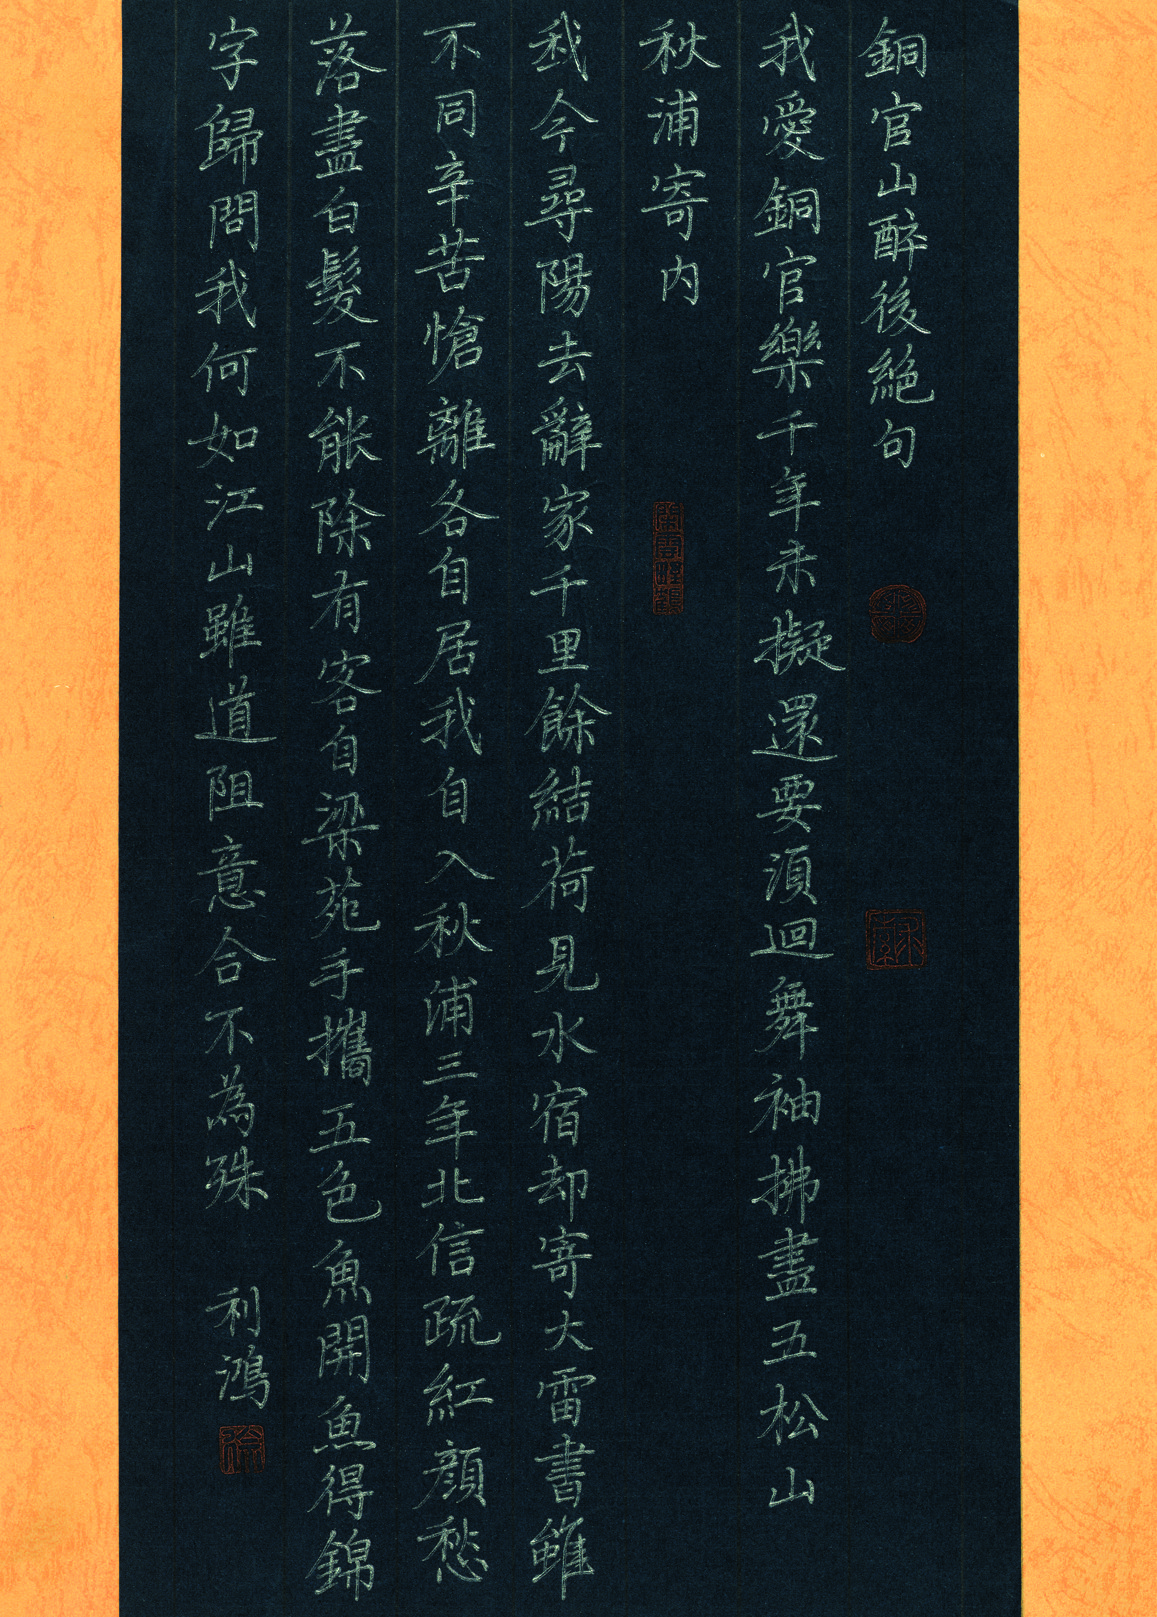 銅官山醉後絕句
我愛銅官樂千年未擬還要須迴舞袖拂盡五松山
秋浦寄內
我今尋陽去辭家千里餘結荷見水宿却寄大雷書雖
不同辛苦愴離各自居我自入秋浦三年北信疏紅顏愁
落盡白髮不能除有客自梁苑手攜五色魚開魚得錦
字歸問我何如江山雖道阻意合不為殊
利鴻